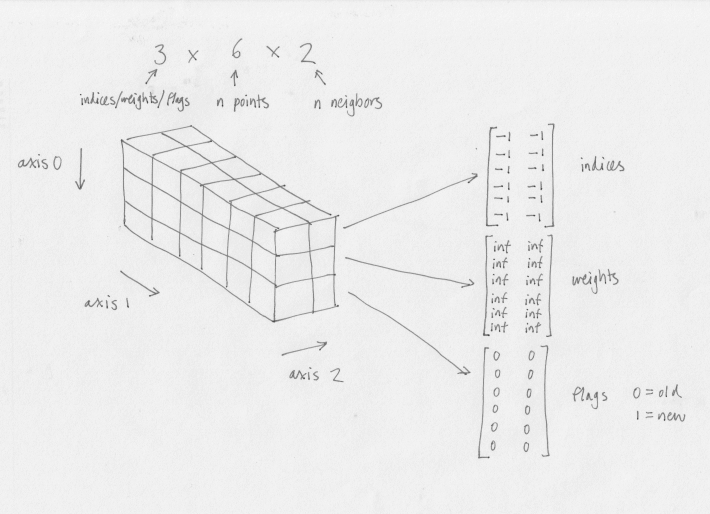 3 x 6 x 2
indices/weights/flags n points n neigbors
axis 0
axis 1
axis 2
-1 -1
-1 -1
-1 -1
-1 -1
-1 -1
-1 -1
indices
inf inf
inf inf
inf inf
inf inf
inf inf
inf inf
weights
0 0
0 0
0 0
0 0
0 0
0 0
flags 0 = old
1 = new